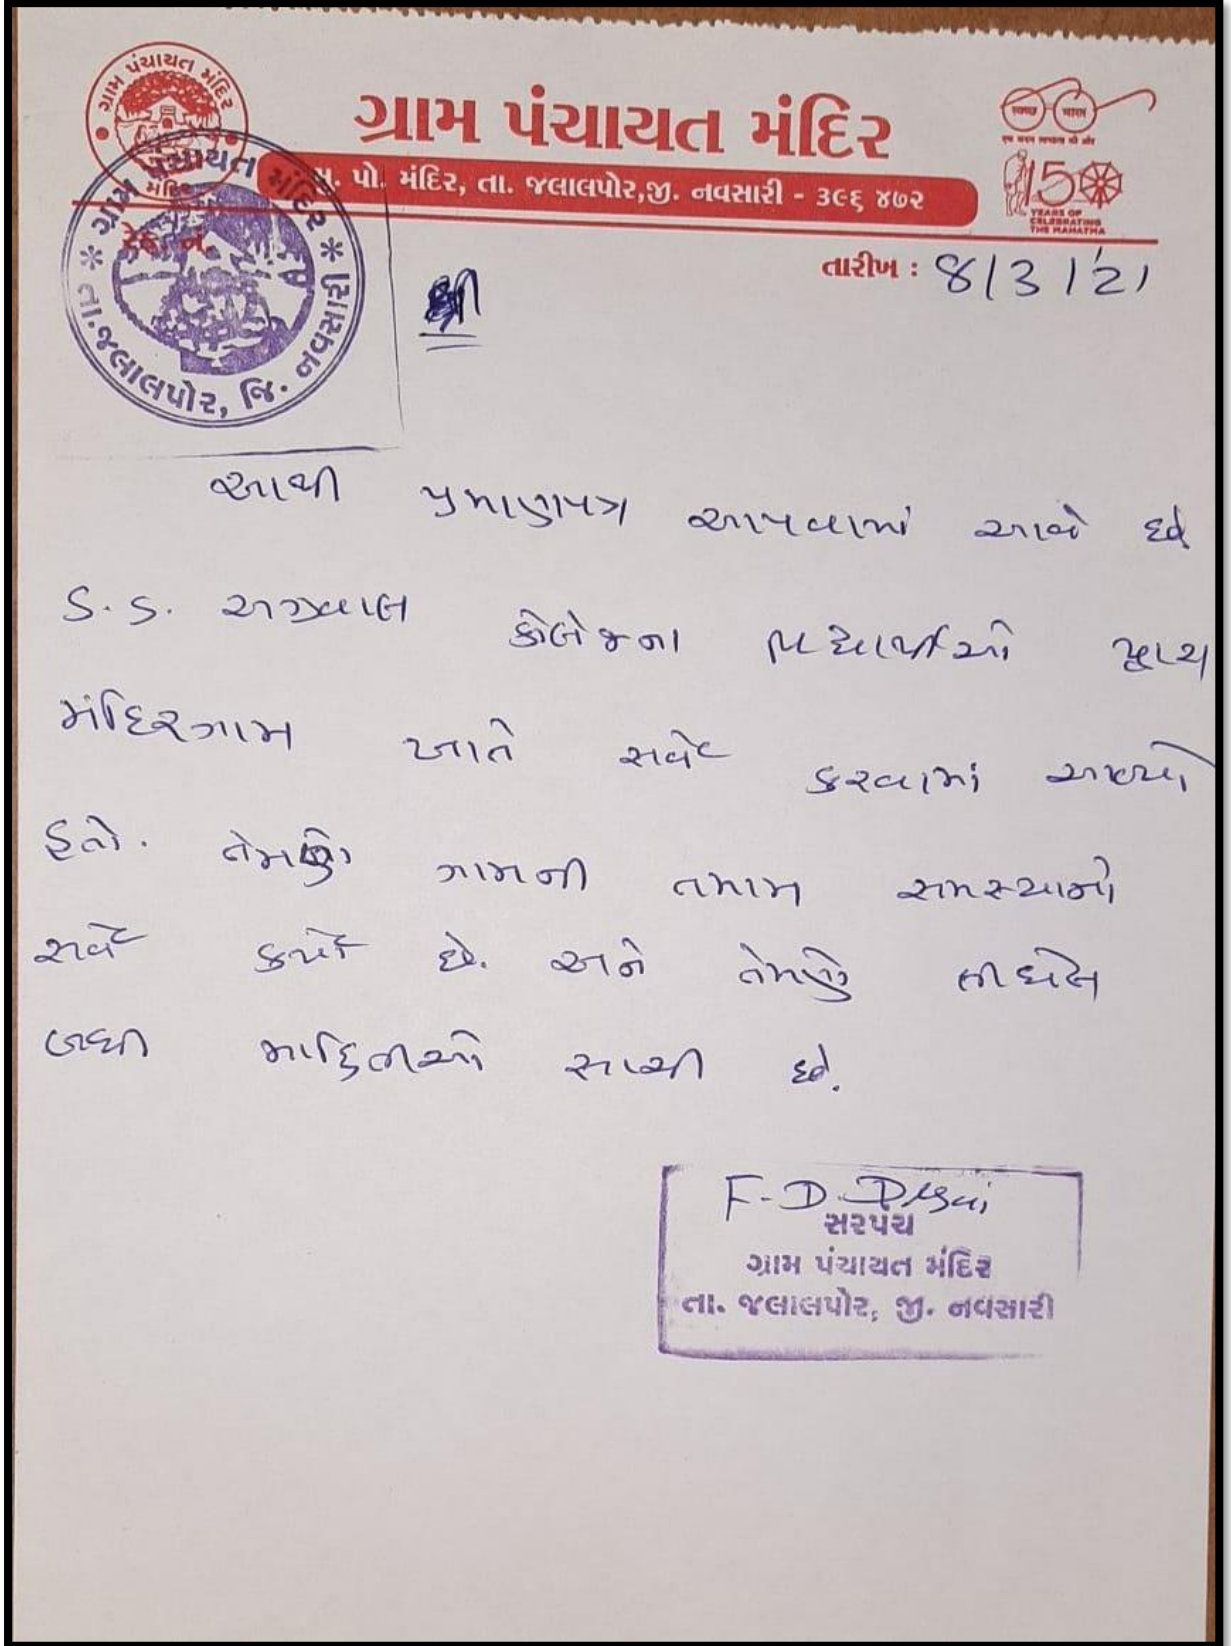 ગ્રામ પંચાયત મંદિર
ગ્રામ પંચાયત મંદિર
મુ. પો. મંદિર, તા. જલાલપોર,જી. નવસારી - ૩૯૬ ૪૭૨
સ્વચ્છ ભારત
150
YEARS OF
CELEBRATING
THE MAHATMA
રેફ. નં.
તારીખ : 8/3/21
ગ્રામ પંચાયત મંદિર
તા. જલાલપોર, જિ. નવસારી
શ્રી
આથી પ્રમાણપત્ર આપવામાં આવે છે
S. S. અગ્રવાલ કોલેજના વિદ્યાર્થીઓ દ્વારા
મંદિરગામ ખાતે સર્વે કરવામાં આવ્યો
હતો. તેમણે ગામની તમામ સમસ્યાનો
સર્વે કર્યો છે. અને તેમણે લીધેલ
બધી માહિતીઓ સાચી છે.
F. D. Desai
સરપંચ
ગ્રામ પંચાયત મંદિર
તા. જલાલપોર, જી. નવસારી